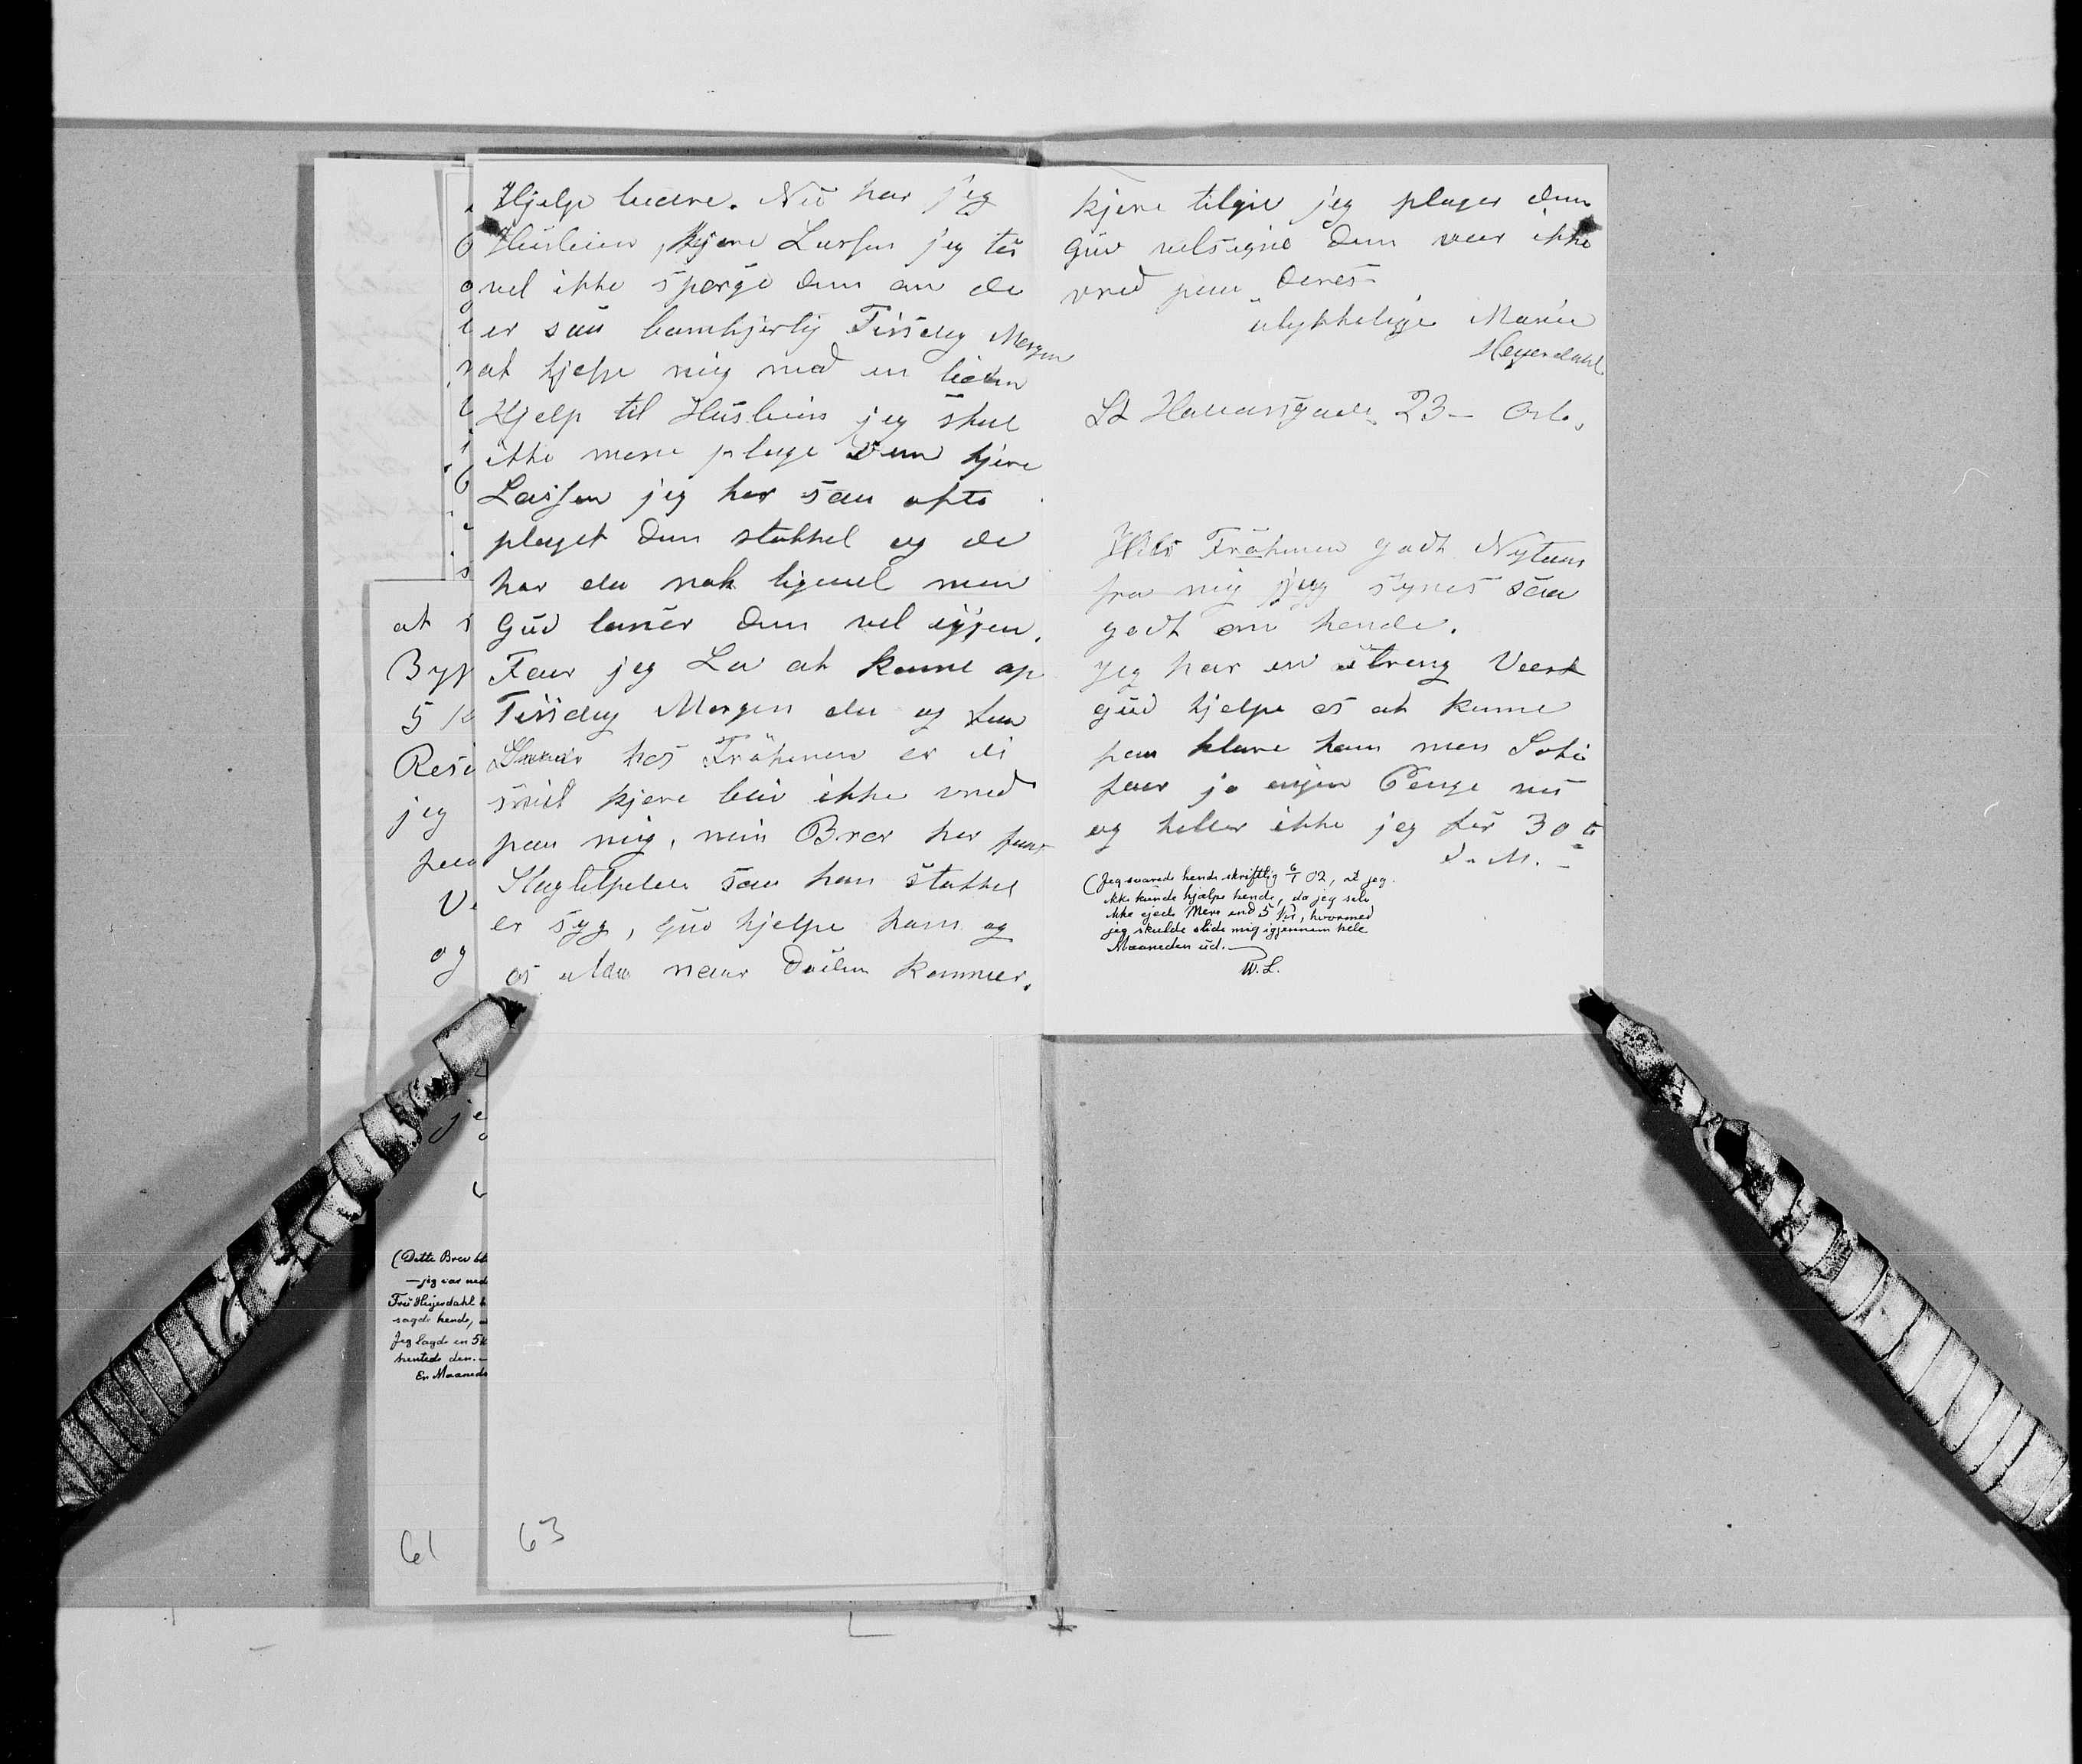 Hjelp bedre. Nu har jeg
Husleien, kjere Lassen jeg tør
vel ikke spørge Dem om de
er saa barmhjertig Tirsdag Morgen
at hjelpe mig med en liden
Hjelp til Husleien jeg skal
ikke mere plage Dem kjere
Lassen jeg har saa ofte
plaget Dem stakkel og de
har da nok ligevel men
Gud lønner Dem vel igjen.
Faar jeg Lov at komme op
Tirsdag Morgen da og faa
Svar hos Frøkenen er di
snil kjere bliv ikke vred
paa mig, min Bror har faat
Slagtilfelde saa han stakkel
er syg, Gud hjelpe ham og
os alda naar Døden kommer.
kjere tilgiv jeg plager dem
Gud velsigne dem veer ikke
vred paa Deres
ulykkelige Marie
Heyerdahl
St Halvarsgade 23 – Oslo.
Hils Frøkenen godt Nytaar
fra mig jeg synes saa
godt om hende.
jeg har en streng Veert
gud hjelpe os at kunne
paa klare ham men Sofi
faar jo ingen Penge nu
og heller ikke jeg før 30 te
d. M. –
(Jeg svarede hende skriftlig 6/1 02, at jeg
ikke kunde hjælpe hende, da jeg selv
ikke ejede Mere end 5 Kr, hvormed
jeg skulde slide mig igjennem hele
Maaneden ud. –
W. L.
at
Byg
5 K
Resi
jeg
paa
og
(Dette Brev bl
– jeg var ned
Fru Heyerdahl
sagde hende,
Jeg lagde en 5 K
hentede den. –
En Maaneds
61
63